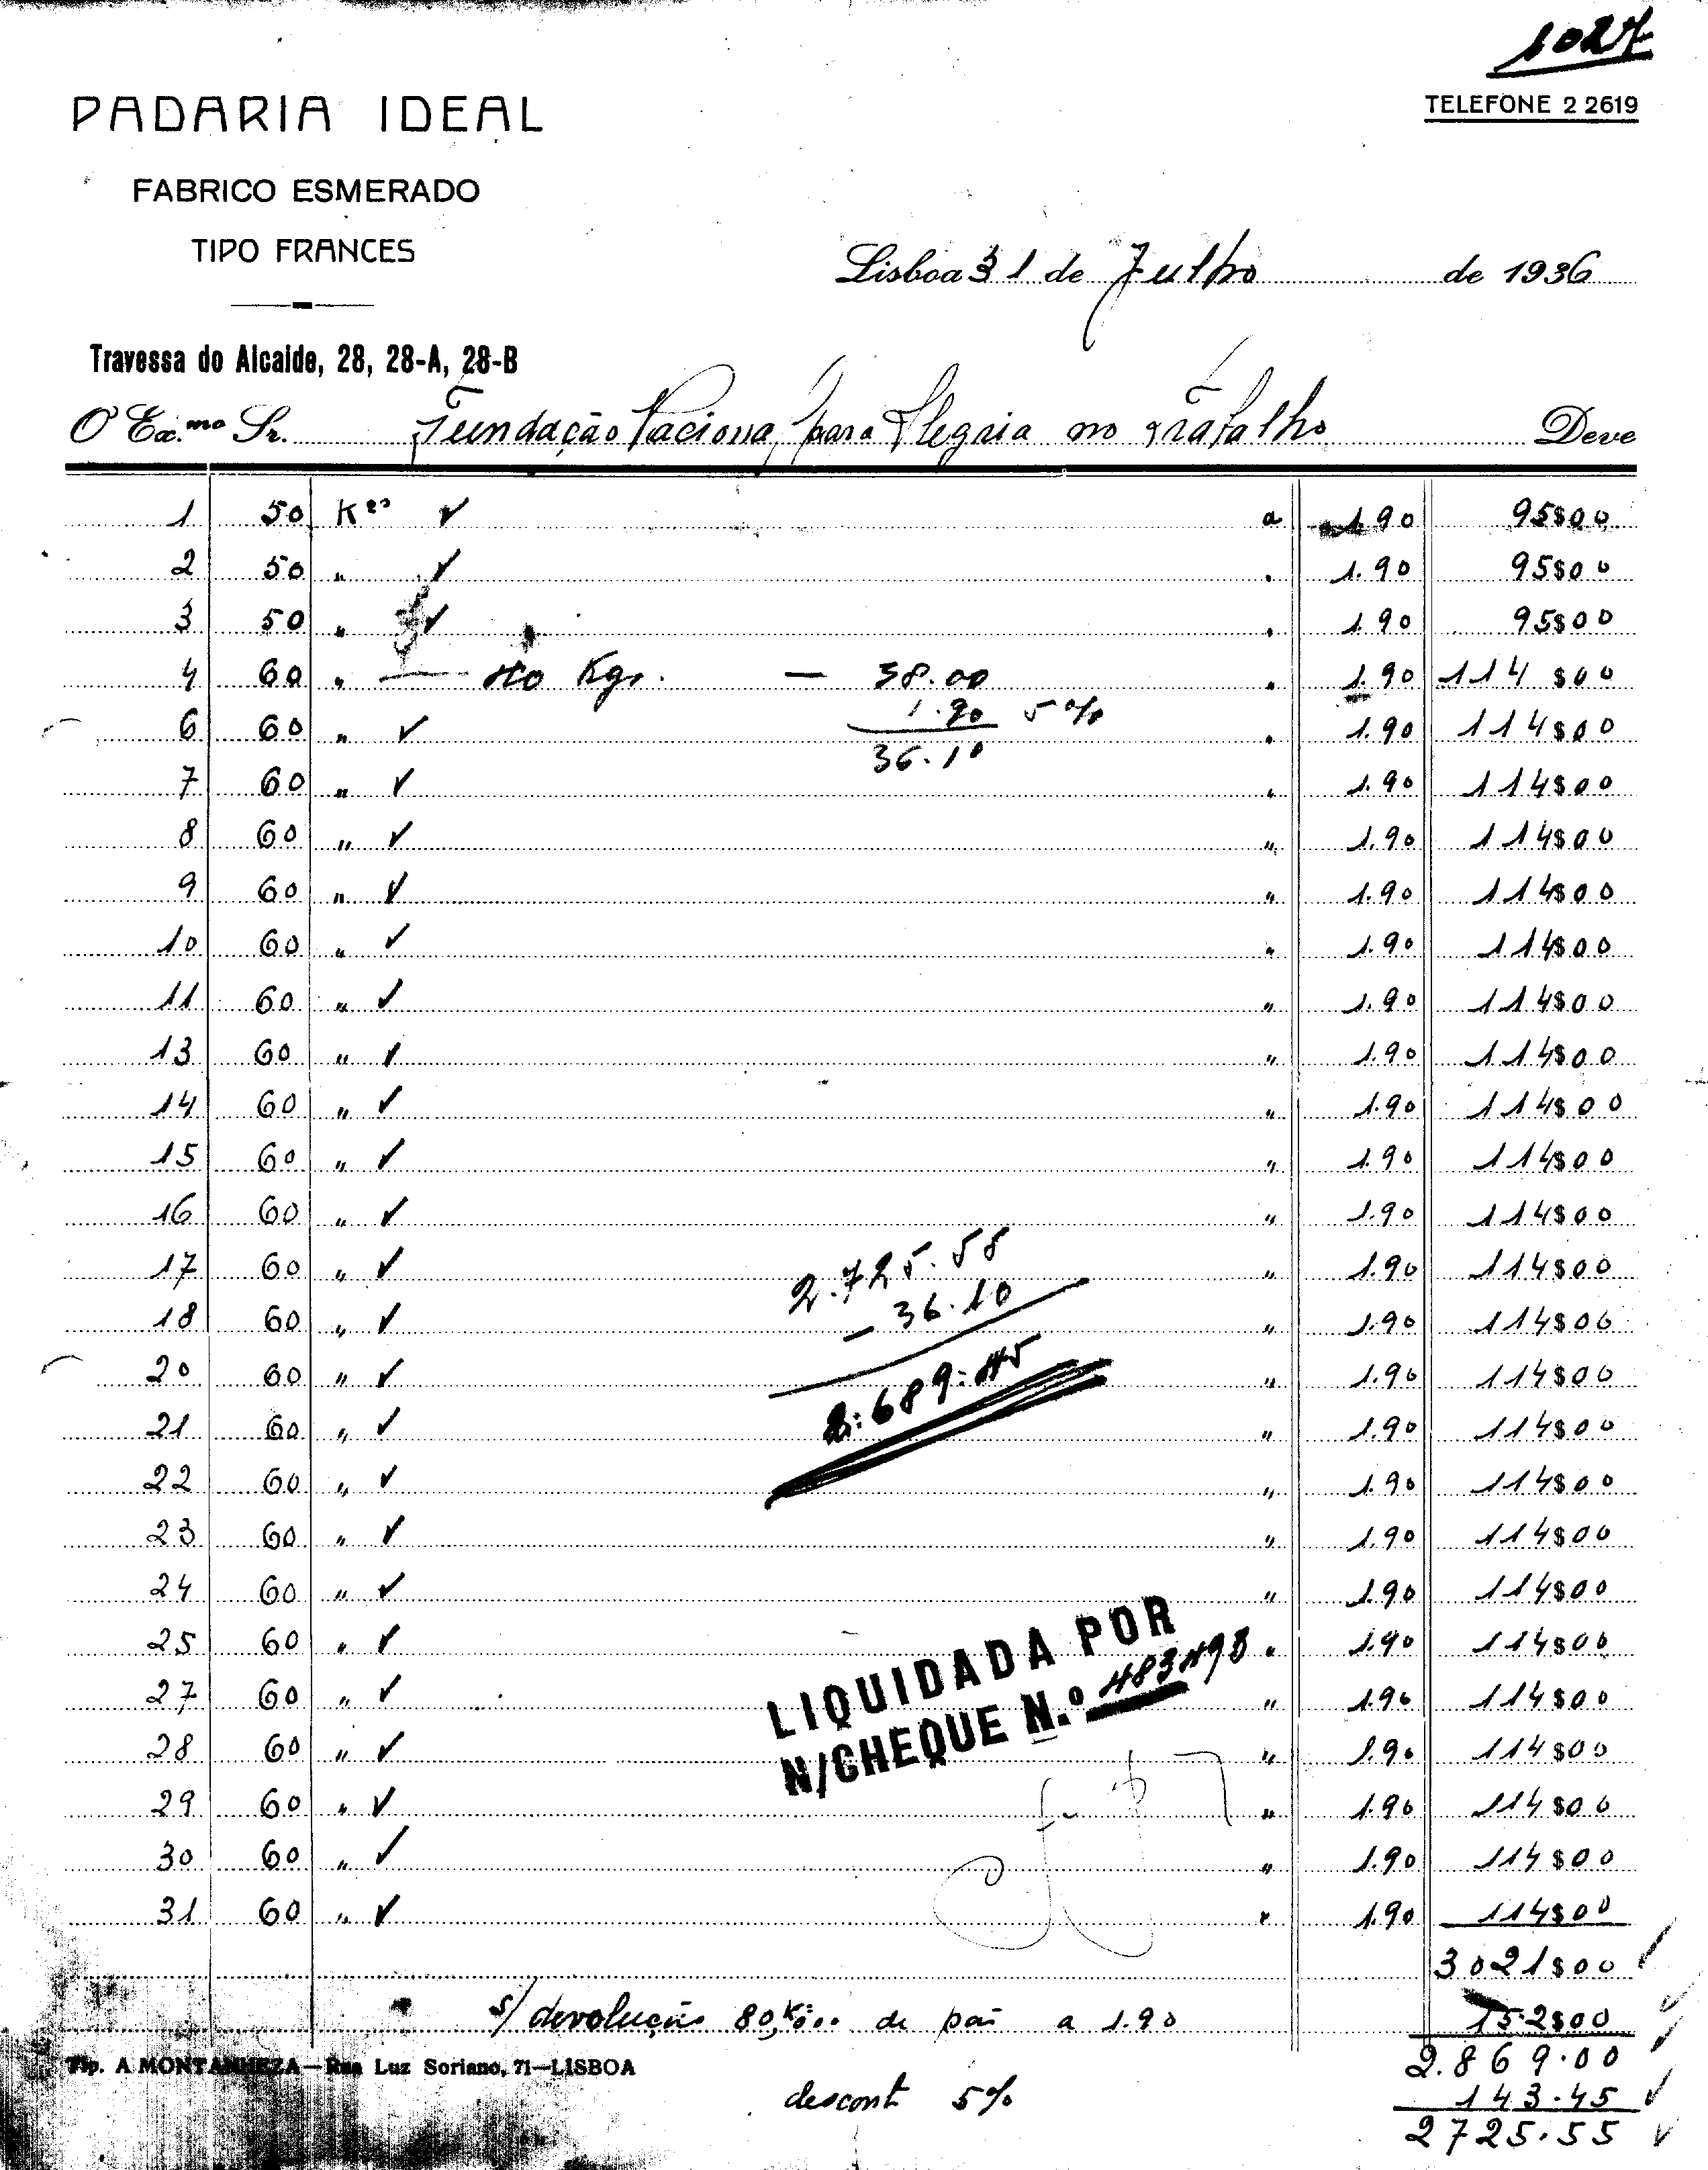 1027
PADARIA IDEAL
TELEFONE 2 2619
FABRICO ESMERADO
TIPO FRANCES
Lisboa 31 de Julho de 1936
Travessa do Alcaide, 28, 28-A, 28-B
O Ex.mo Sr. Fundação Naciona, para Alegria no Trabalho Deve
1 50 Kos ✓ a 1.90 95$00
2 50 " ✓ " 1.90 95$00
3 50 " ✓ " 1.90 95$00
4 60 " — 40 Kgr. — 38.00 " 1.90 114$00
1.90 5%
6 60 " ✓ " 1.90 114$00
36.10
7 60 " ✓ " 1.90 114$00
8 60 " ✓ " 1.90 114$00
9 60 " ✓ " 1.90 114$00
10 60 " ✓ " 1.90 114$00
11 60 " ✓ " 1.90 114$00
13 60 " ✓ " 1.90 114$00
14 60 " ✓ " 1.90 114$00
15 60 " ✓ " 1.90 114$00
16 60 " ✓ " 1.90 114$00
17 60 " ✓ " 1.90 114$00
2.725.55
18 60 " ✓ " 1.90 114$00
– 36.10
20 60 " ✓ " 1.90 114$00
2:689:45
21 60 " ✓ " 1.90 114$00
22 60 " ✓ " 1.90 114$00
23 60 " ✓ " 1.90 114$00
24 60 " ✓ " 1.90 114$00
25 60 " ✓ " 1.90 114$00
LIQUIDADA POR
N/CHEQUE N.º 483493
27 60 " ✓ " 1.90 114$00
28 60 " ✓ " 1.90 114$00
29 60 " ✓ " 1.90 114$00
30 60 " ✓ " 1.90 114$00
31 60 " ✓ " 1.90 114$00
3021$00 ✓
s/ devolução 80,K000 de pão a 1.90 152$00 ✓
2.869.00 ✓
Tip. A MONTANHEZA—Rua Luz Soriano, 71—LISBOA
descont 5% 143.45 ✓
2725.55 ✓